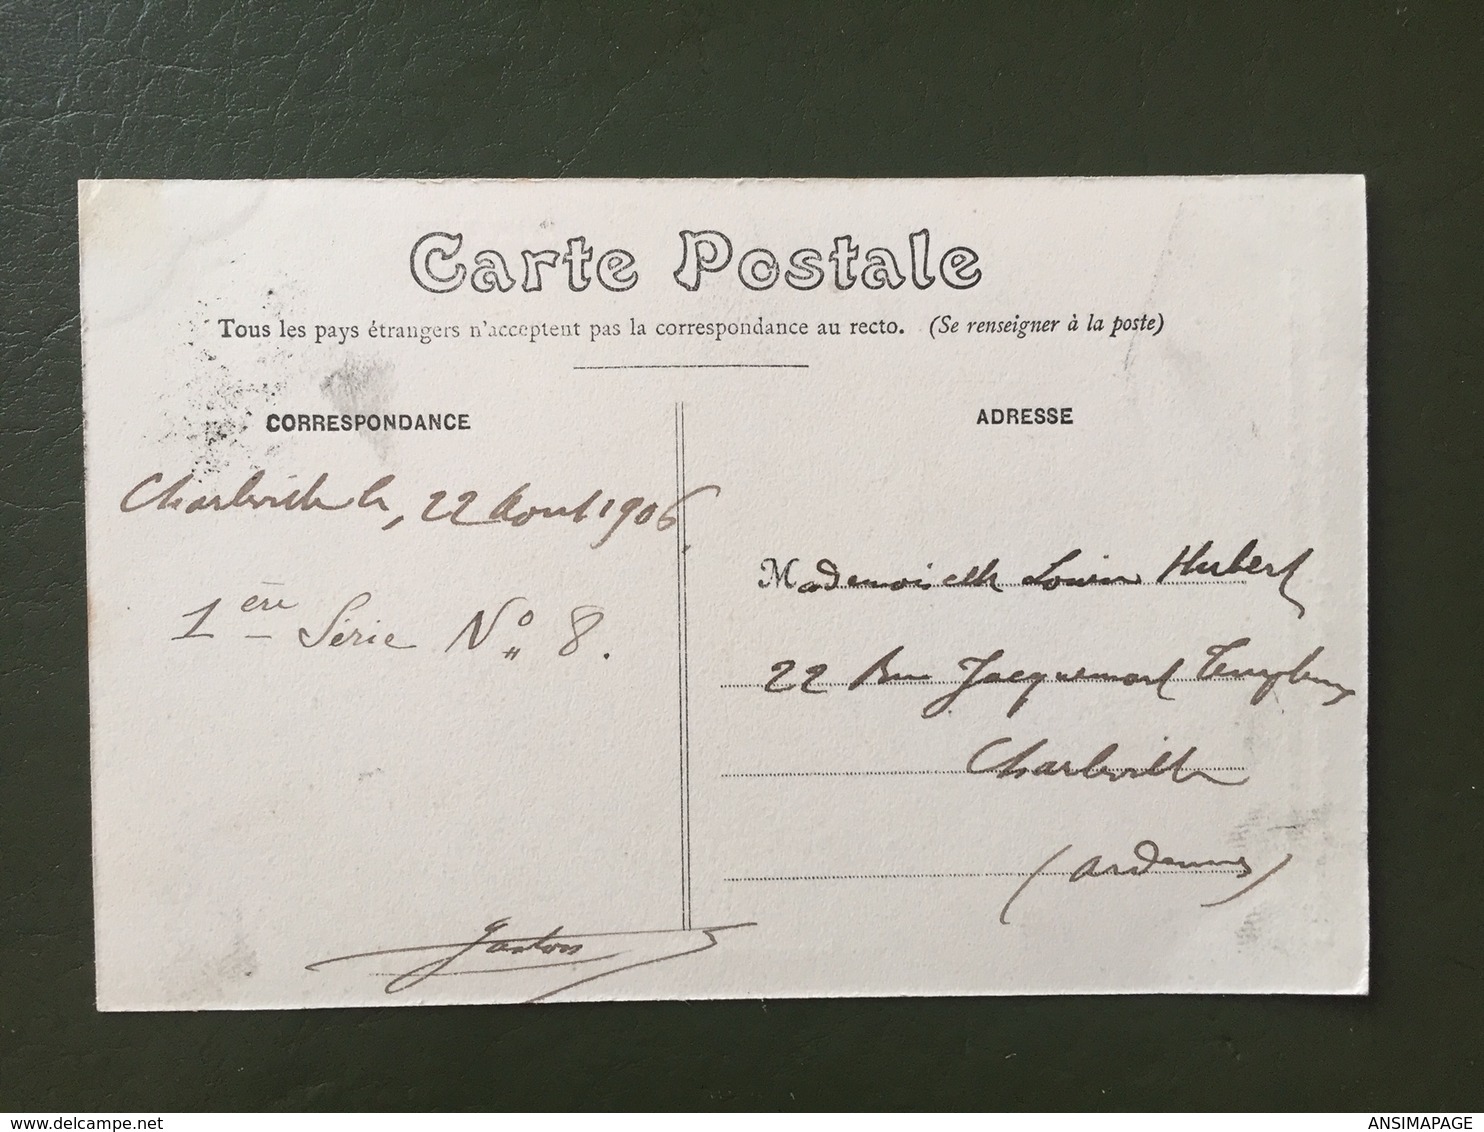 Carte Postale
Tous les pays étrangers n'acceptent pas la correspondance au recto. (Se renseigner à la poste)
CORRESPONDANCE
Charleville le, 22 Aout 1906
1ère Série No 8.
Gaston
ADRESSE
Mademoiselle Louise Hubert
22 Rue Jacquemart Templeux
Charleville
(Ardennes)
delcampe.net
ANSIMAPAGE